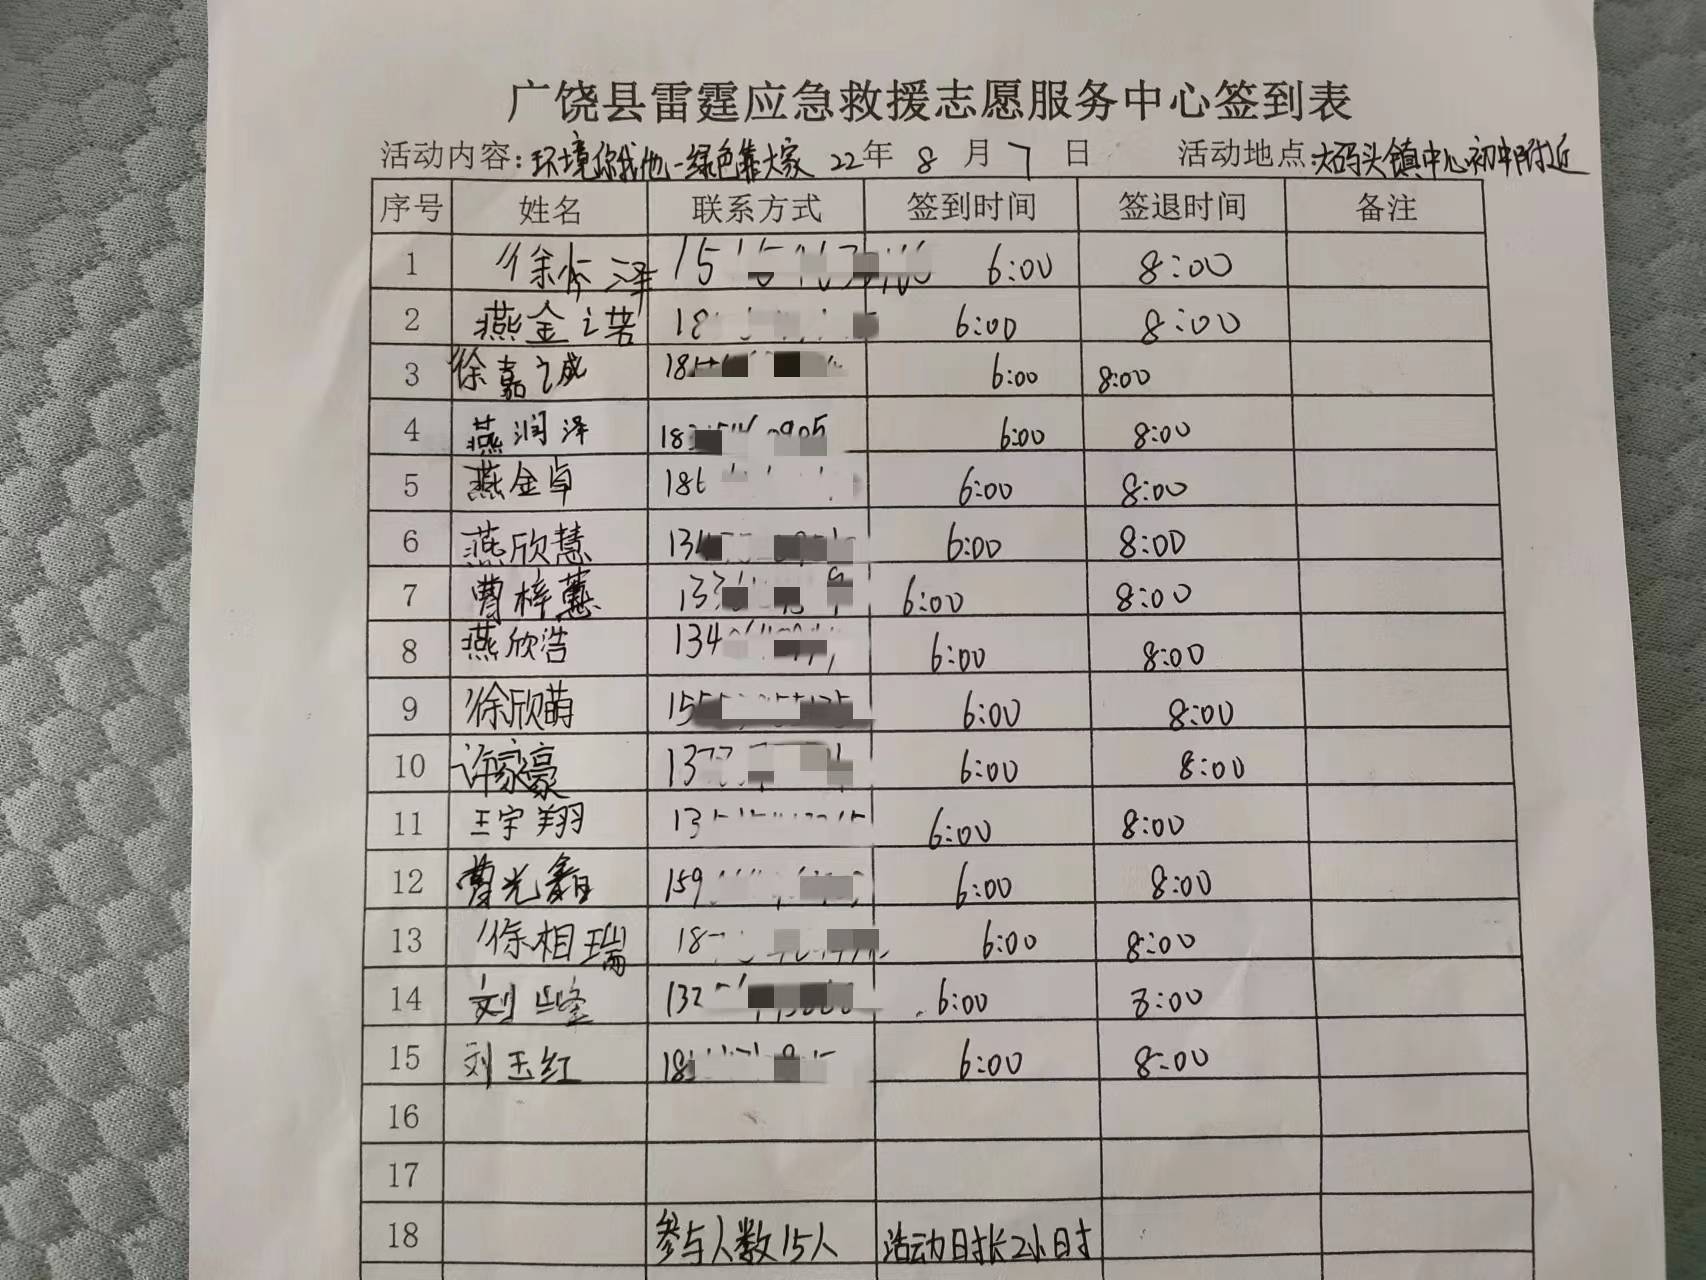 广饶县雷霆应急救援志愿服务中心签到表
活动内容：环境你我他-绿色靠大家 22年 8 月 7 日 活动地点：大码头镇中心初中附近
序号 姓名 联系方式 签到时间 签退时间 备注
1 徐 泽 15 6:00 8:00
2 燕金之诺 18 6:00 8:00
3 徐嘉之成 18 6:00 8:00
4 燕润泽 183 6:00 8:00
5 燕金卓 186 6:00 8:00
6 燕欣慧 134 6:00 8:00
7 曹梓 133 6:00 8:00
8 燕欣浩 134 6:00 8:00
9 徐欣萌 155 6:00 8:00
10 许家豪 13 6:00 8:00
11 王宇翔 13 6:00 8:00
12 曹光 159 6:00 8:00
13 徐相瑞 18 6:00 8:00
14 刘峰 132 6:00 8:00
15 刘玉红 18 6:00 8:00
16
17
18 参与人数15人 活动时长2小时